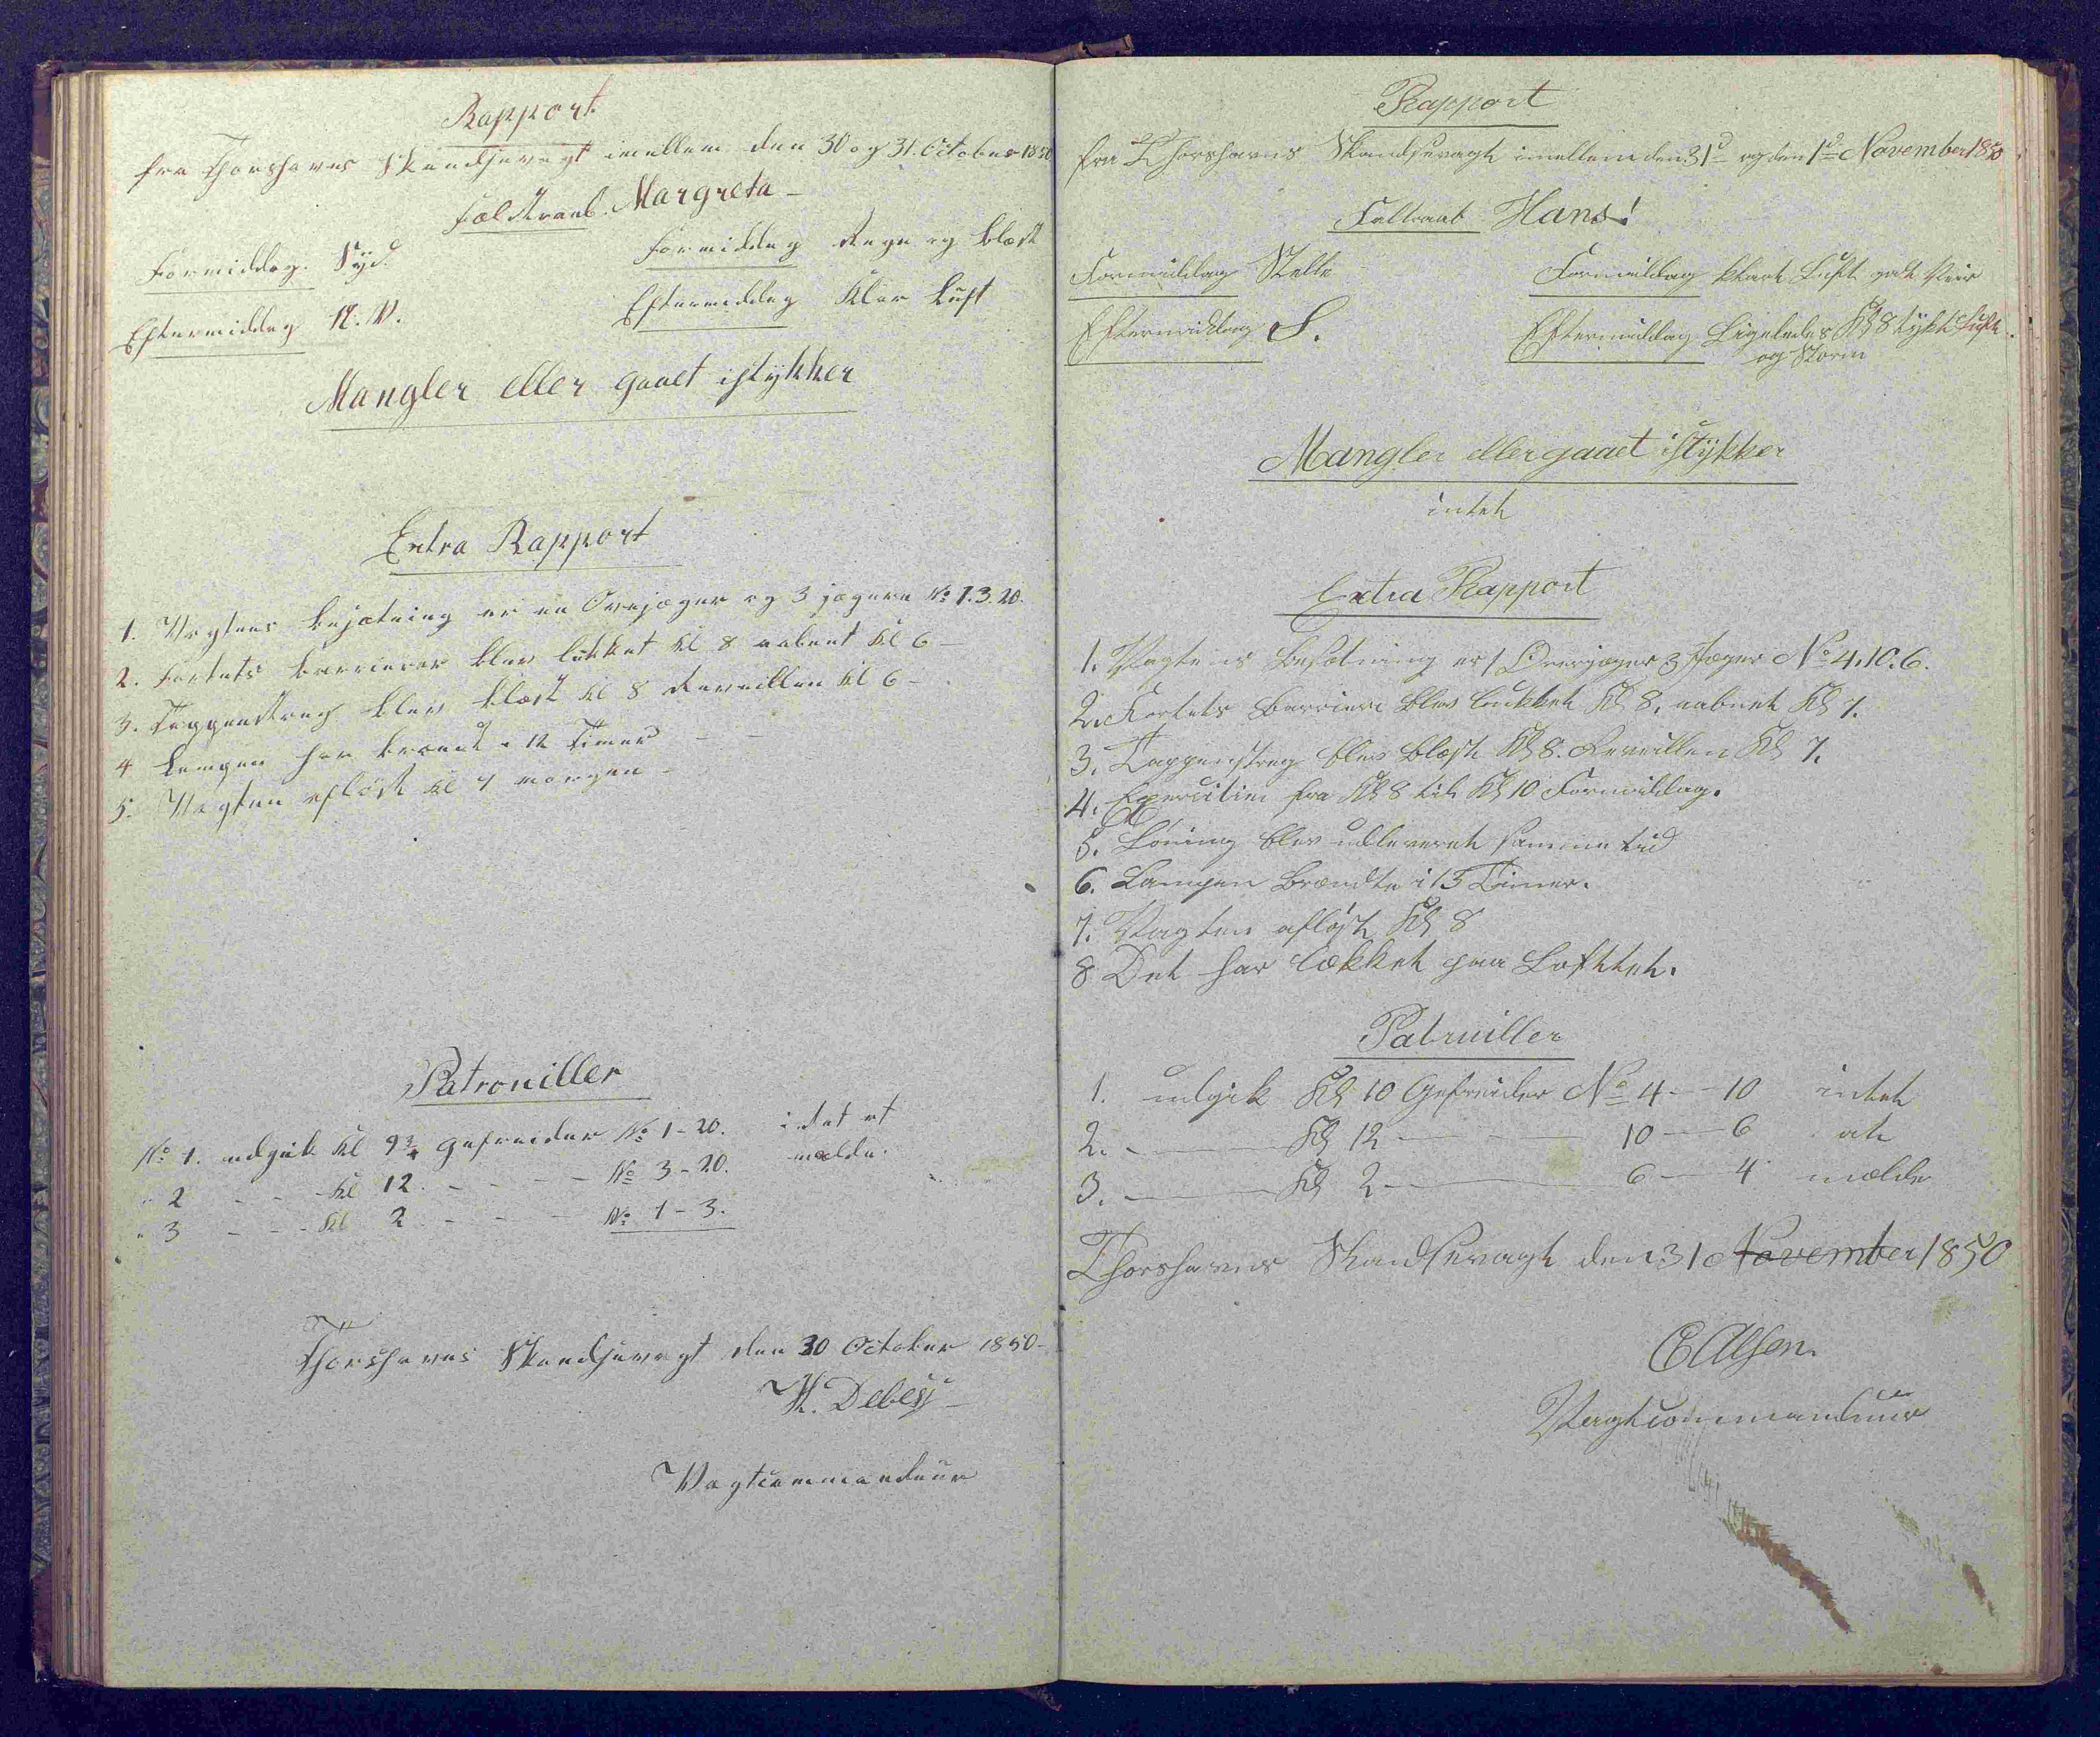 Rapport.
fra Thorshavns Skandsevagt imellem den 30 og 31. October 1850
Feldtraab. Margreta -
Formiddag. Syd. Formiddag Regn og blæst
Eftermiddag N. V. Eftermiddag Klar luft
Mangler eller gaaet istykker
Extra Rapport
1. Vagtens besætning er en Overjæger og 3 jægere No 1. 3. 20.
2. Fortets barrierer blev lukket Kl 8 aabent Kl 6 -
3. Tappenstreg blev blæst Kl 8 Reveillen Kl 6 -
4 Lampen har brændt i 12 Timer - -
5. Vagten afløst Kl 7 morgen -
Patrouiller
No 1. udgik Kl 9 3/4 gefreider No 1 - 20. intet at
" 2 - - - Kl 12. - - - - No 3 - 20. mælde.
" 3 - - - Kl 2 - - - - No 1 - 3.
Thorshavns Skandsevagt den 30 October 1850 -
H. Debes
Vagtcommandeur
Rapport
fra Thorshavns Skandsevagt imellem den 31d og den 1d November 1850
Feltraab Hans!
Formiddag Stelle Formiddag klart Luft godt Veir
Eftermiddag S. Eftermiddag Ligeledes Kl 8 tykt Luft
og Storm
Mangler eller gaaet istykker
intet
Extra Rapport
1. Vagtens Besætning er 1 Overjæger 3 Jæger No 4. 10. 6.
2. Fortets Barriere blev lukket Kl 8, aabnet Kl 7.
3. Tappenstreg blev blæst Kl 8. Reveillen Kl 7.
4. Exercitien fra Kl 8 til Kl 10 Formiddag.
5. Løning blev udleveret samme tid
6. Lampen Brændte i 13 Timer.
7. Vagten afløst Kl 8
8 Det har lækket paa Lofttet.
Patruiller
1. udgik Kl 10 Gefreider No 4 - - 10 intet
2. - Kl 12 - - 10 - 6 at
3. - Kl 2 - 6 - 4 mælde
Thorshavns Skandsevagt den 31 November 1850
Vagtcommandeur